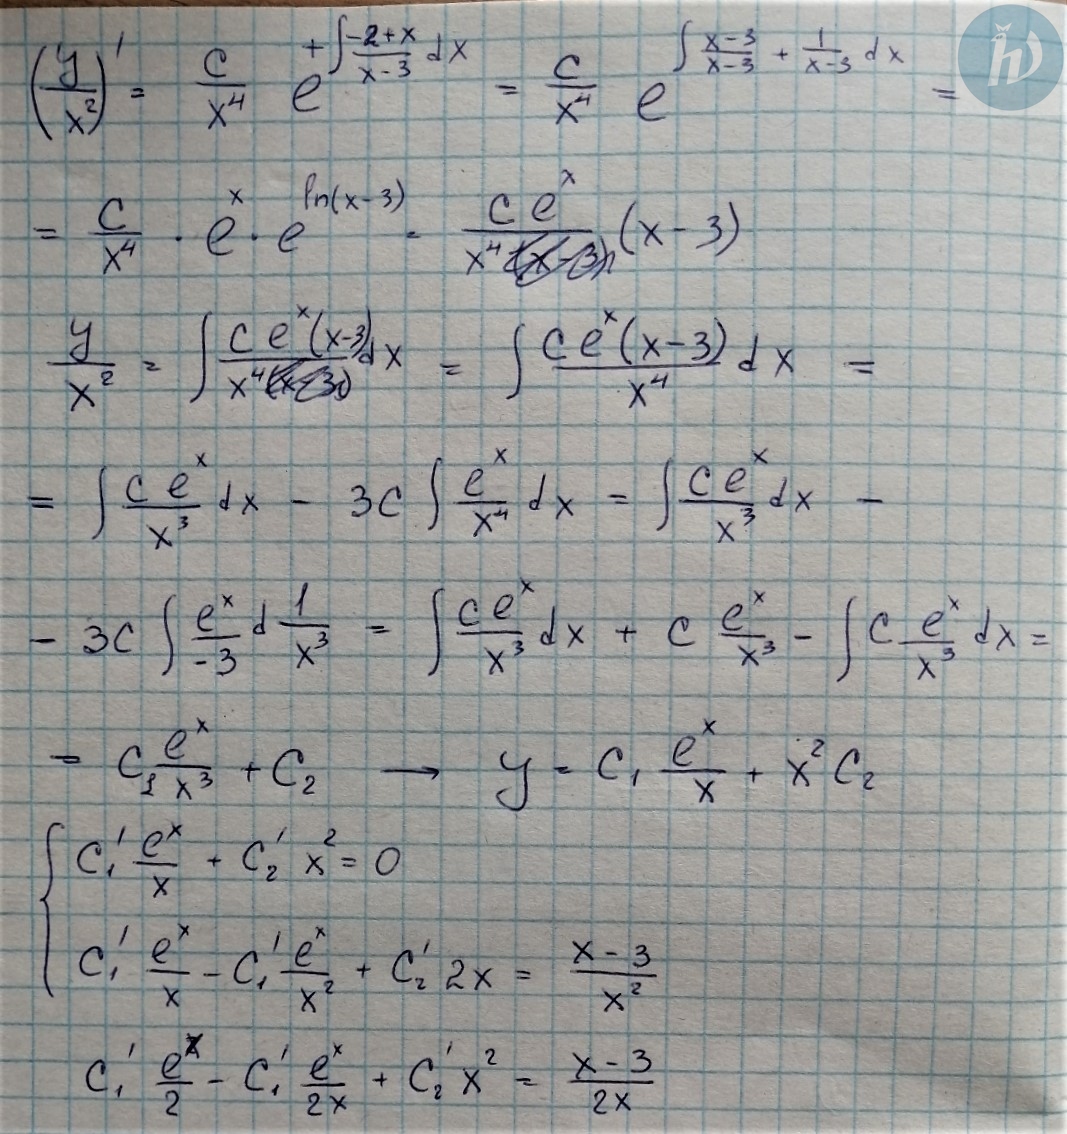 (y/x²)' = c/x⁴ e^(+∫(-2+x)/(x-3) dx) = c/x⁴ e^(∫(x-3)/(x-3) + 1/(x-3) dx) =
= c/x⁴ · eˣ · e^(ln(x-3)) = ceˣ/x⁴ (x-3)
y/x² = ∫ ceˣ(x-3)/x⁴ dx = ∫ ceˣ(x-3)/x⁴ dx =
= ∫ ceˣ/x³ dx - 3c ∫ eˣ/x⁴ dx = ∫ ceˣ/x³ dx -
- 3c ∫ eˣ/-3 d 1/x³ = ∫ ceˣ/x³ dx + c eˣ/x³ - ∫ c eˣ/x³ dx =
= c₁ eˣ/x³ + c₂ → y = c₁ eˣ/x + x² c₂
{ c₁' eˣ/x + c₂' x² = 0
c₁' eˣ/x - c₁' eˣ/x² + c₂' 2x = (x-3)/x²
c₁' eˣ/2 - c₁' eˣ/2x + c₂' x² = (x-3)/2x